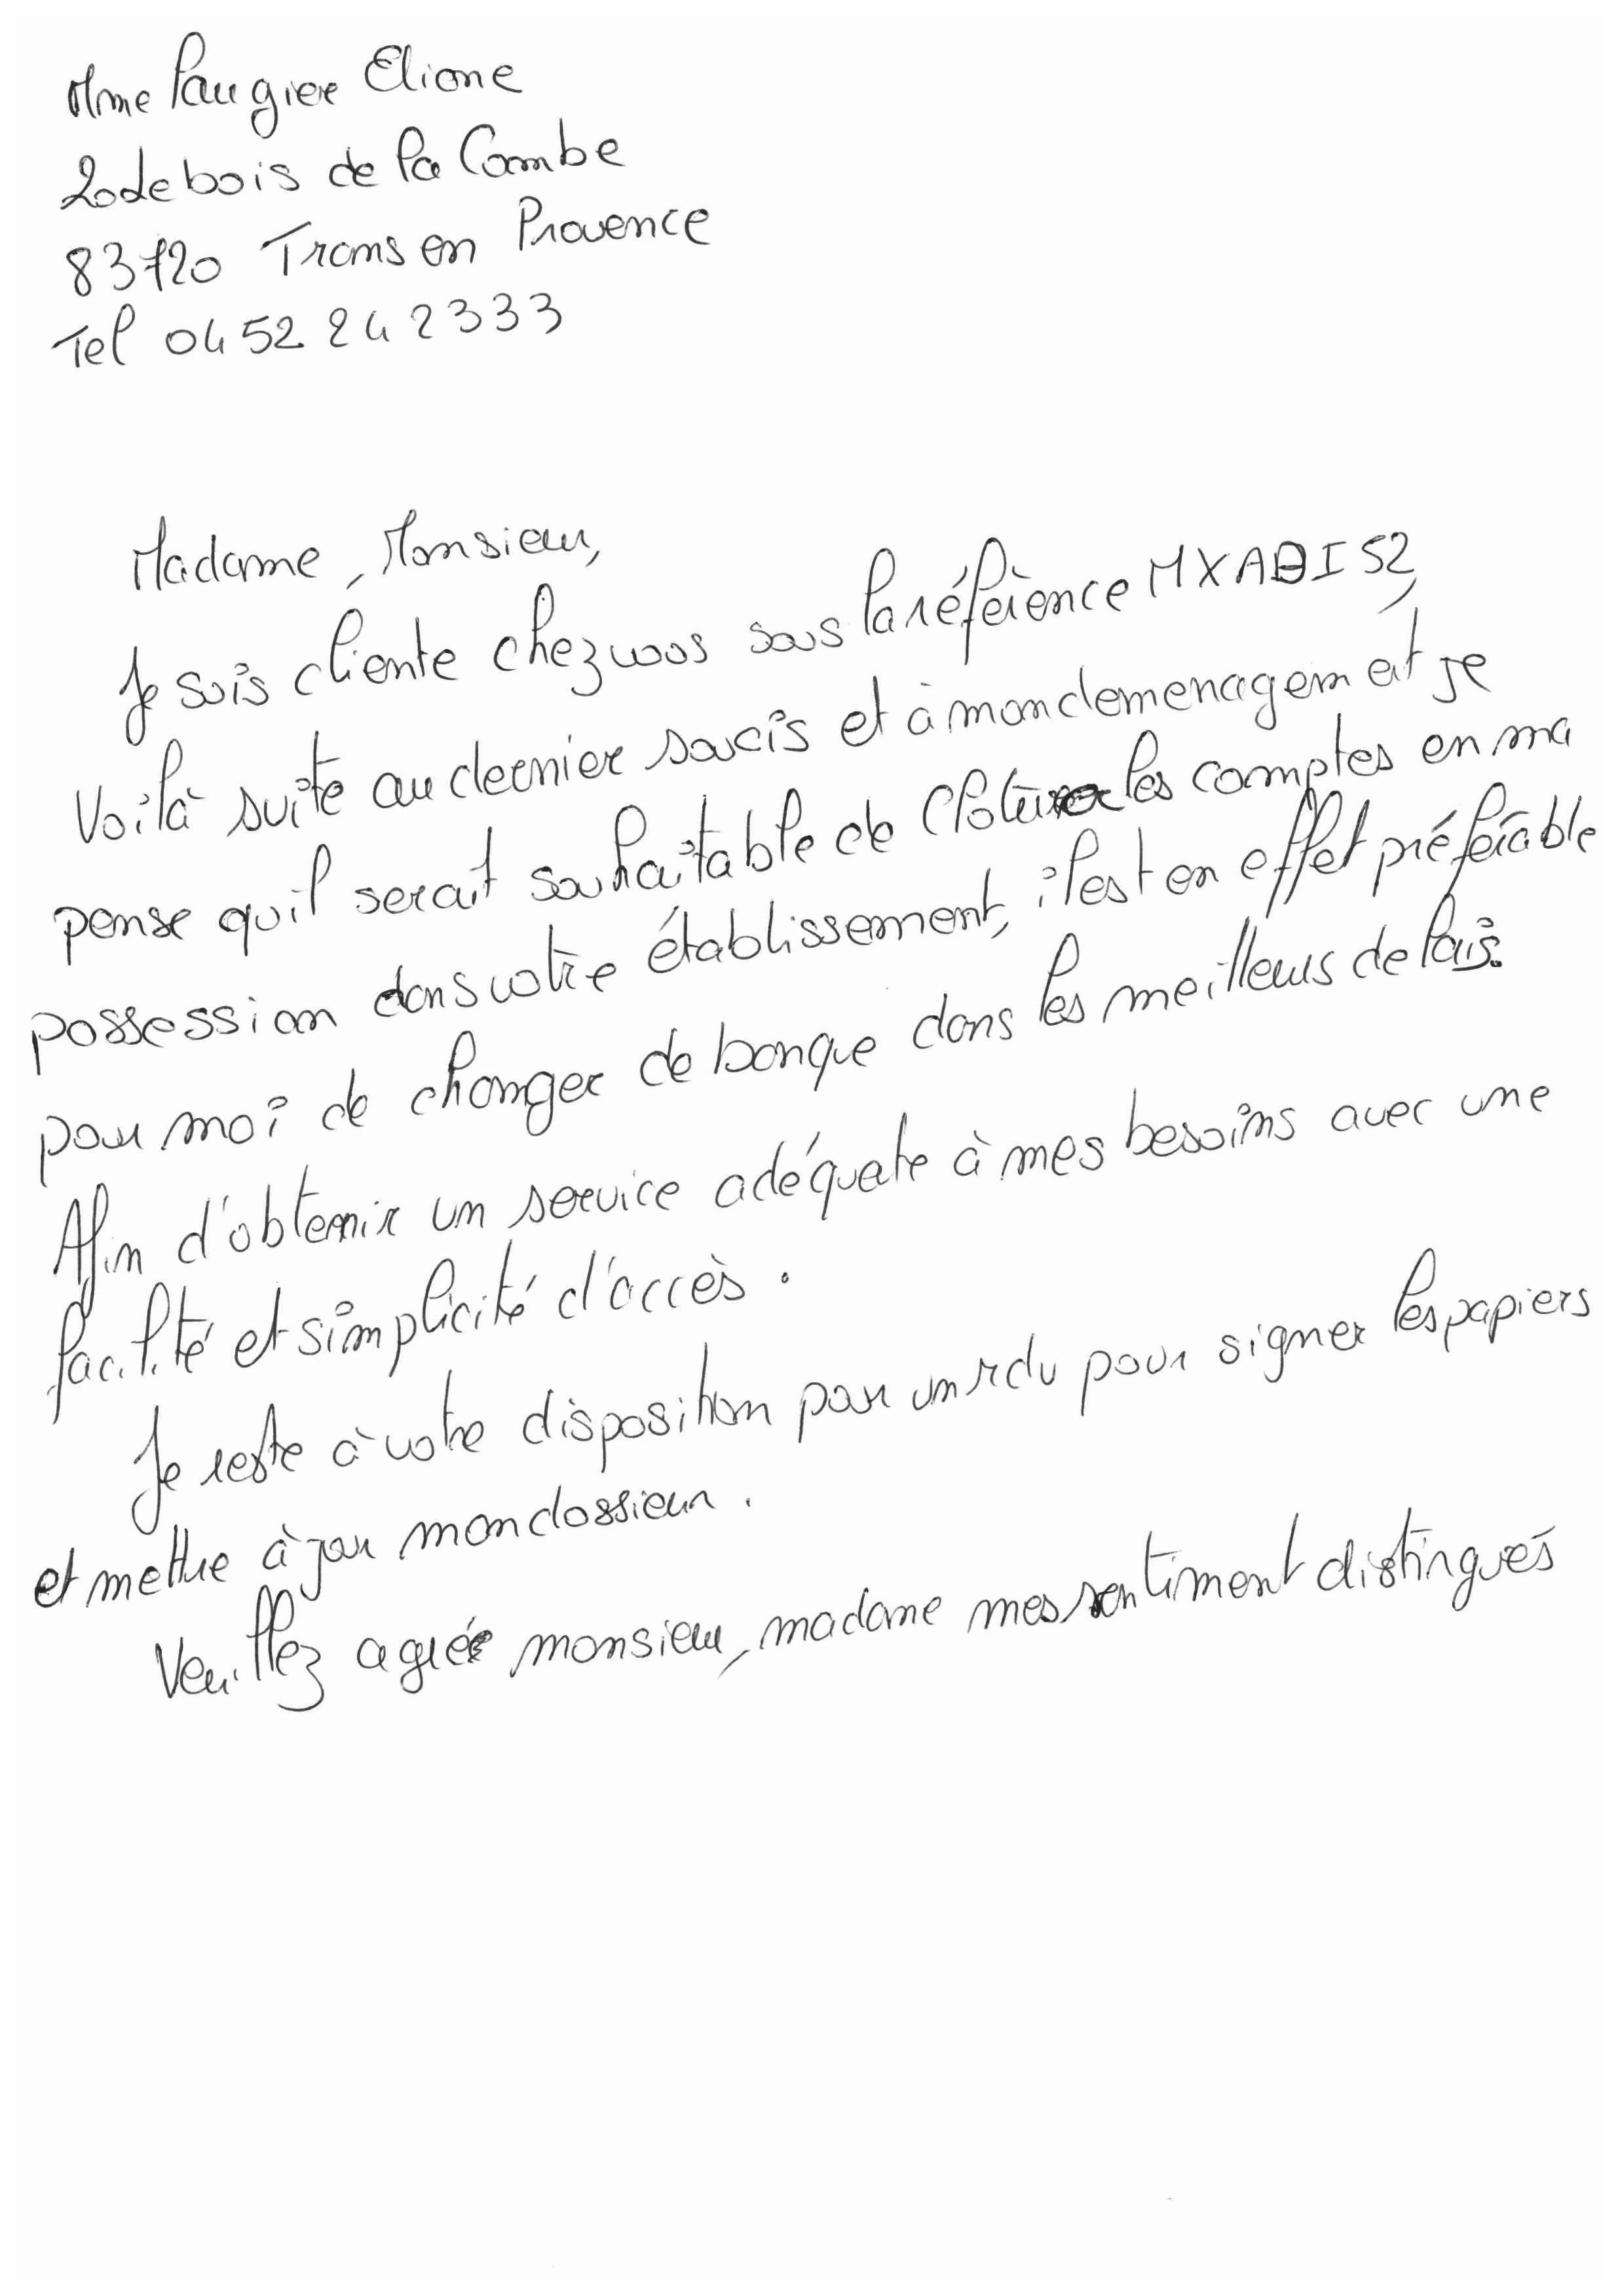 Mme Laugier Eliane
20 le bois de la Combe
83720 Trans en Provence
Tel 04 52 24 2333
Madame, Monsieur,
Je suis cliente chez vous sous la référence MXABI52,
Voilà suite au dernier soucis et à mon demenagement je
pense quil serait souhaitable de cloturer les comptes en ma
possession dans votre établissement, il est en effet préférable
pour moi de changer de banque dans les meilleurs delais.
Afin d'obtenir un service adéquate à mes besoins avec une
facilité et simplicité d'accès.
Je reste à votre disposition pour un rdv pour signer les papiers
et mettre à jour mon dossieur.
Veuillez agréer monsieur, madame mes sentiment distingués